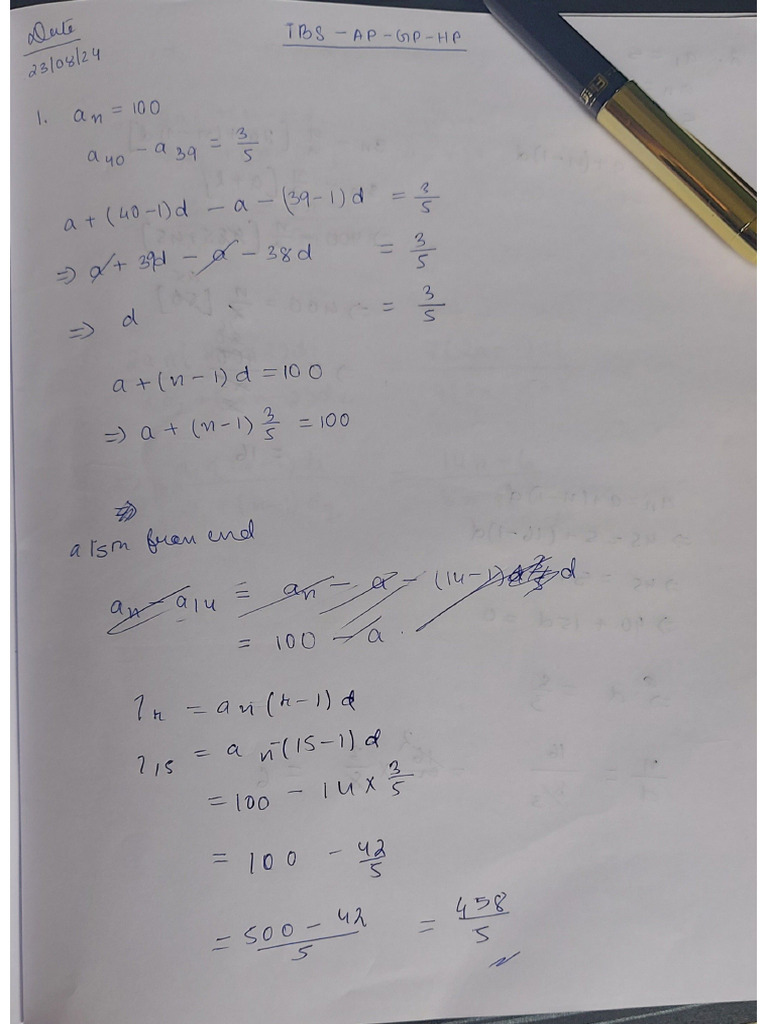 Date
23/08/24
TBS - AP - GP - HP
1. aₙ = 100
a₄₀ - a₃₉ = 3/5
a + (40-1)d - a - (39-1)d = 3/5
⇒ a + 39d - a - 38d = 3/5
⇒ d = 3/5
a + (n-1)d = 100
⇒ a + (n-1) 3/5 = 100
⇒
a 15th from end
aₙ - a₁₄ = aₙ - a - (14-1) d
= 100 - a.
lₙ = aₙ - (n-1)d
l₁₅ = aₙ - (15-1)d
= 100 - 14 × 3/5
= 100 - 42/5
= 500 - 42 / 5 = 458/5